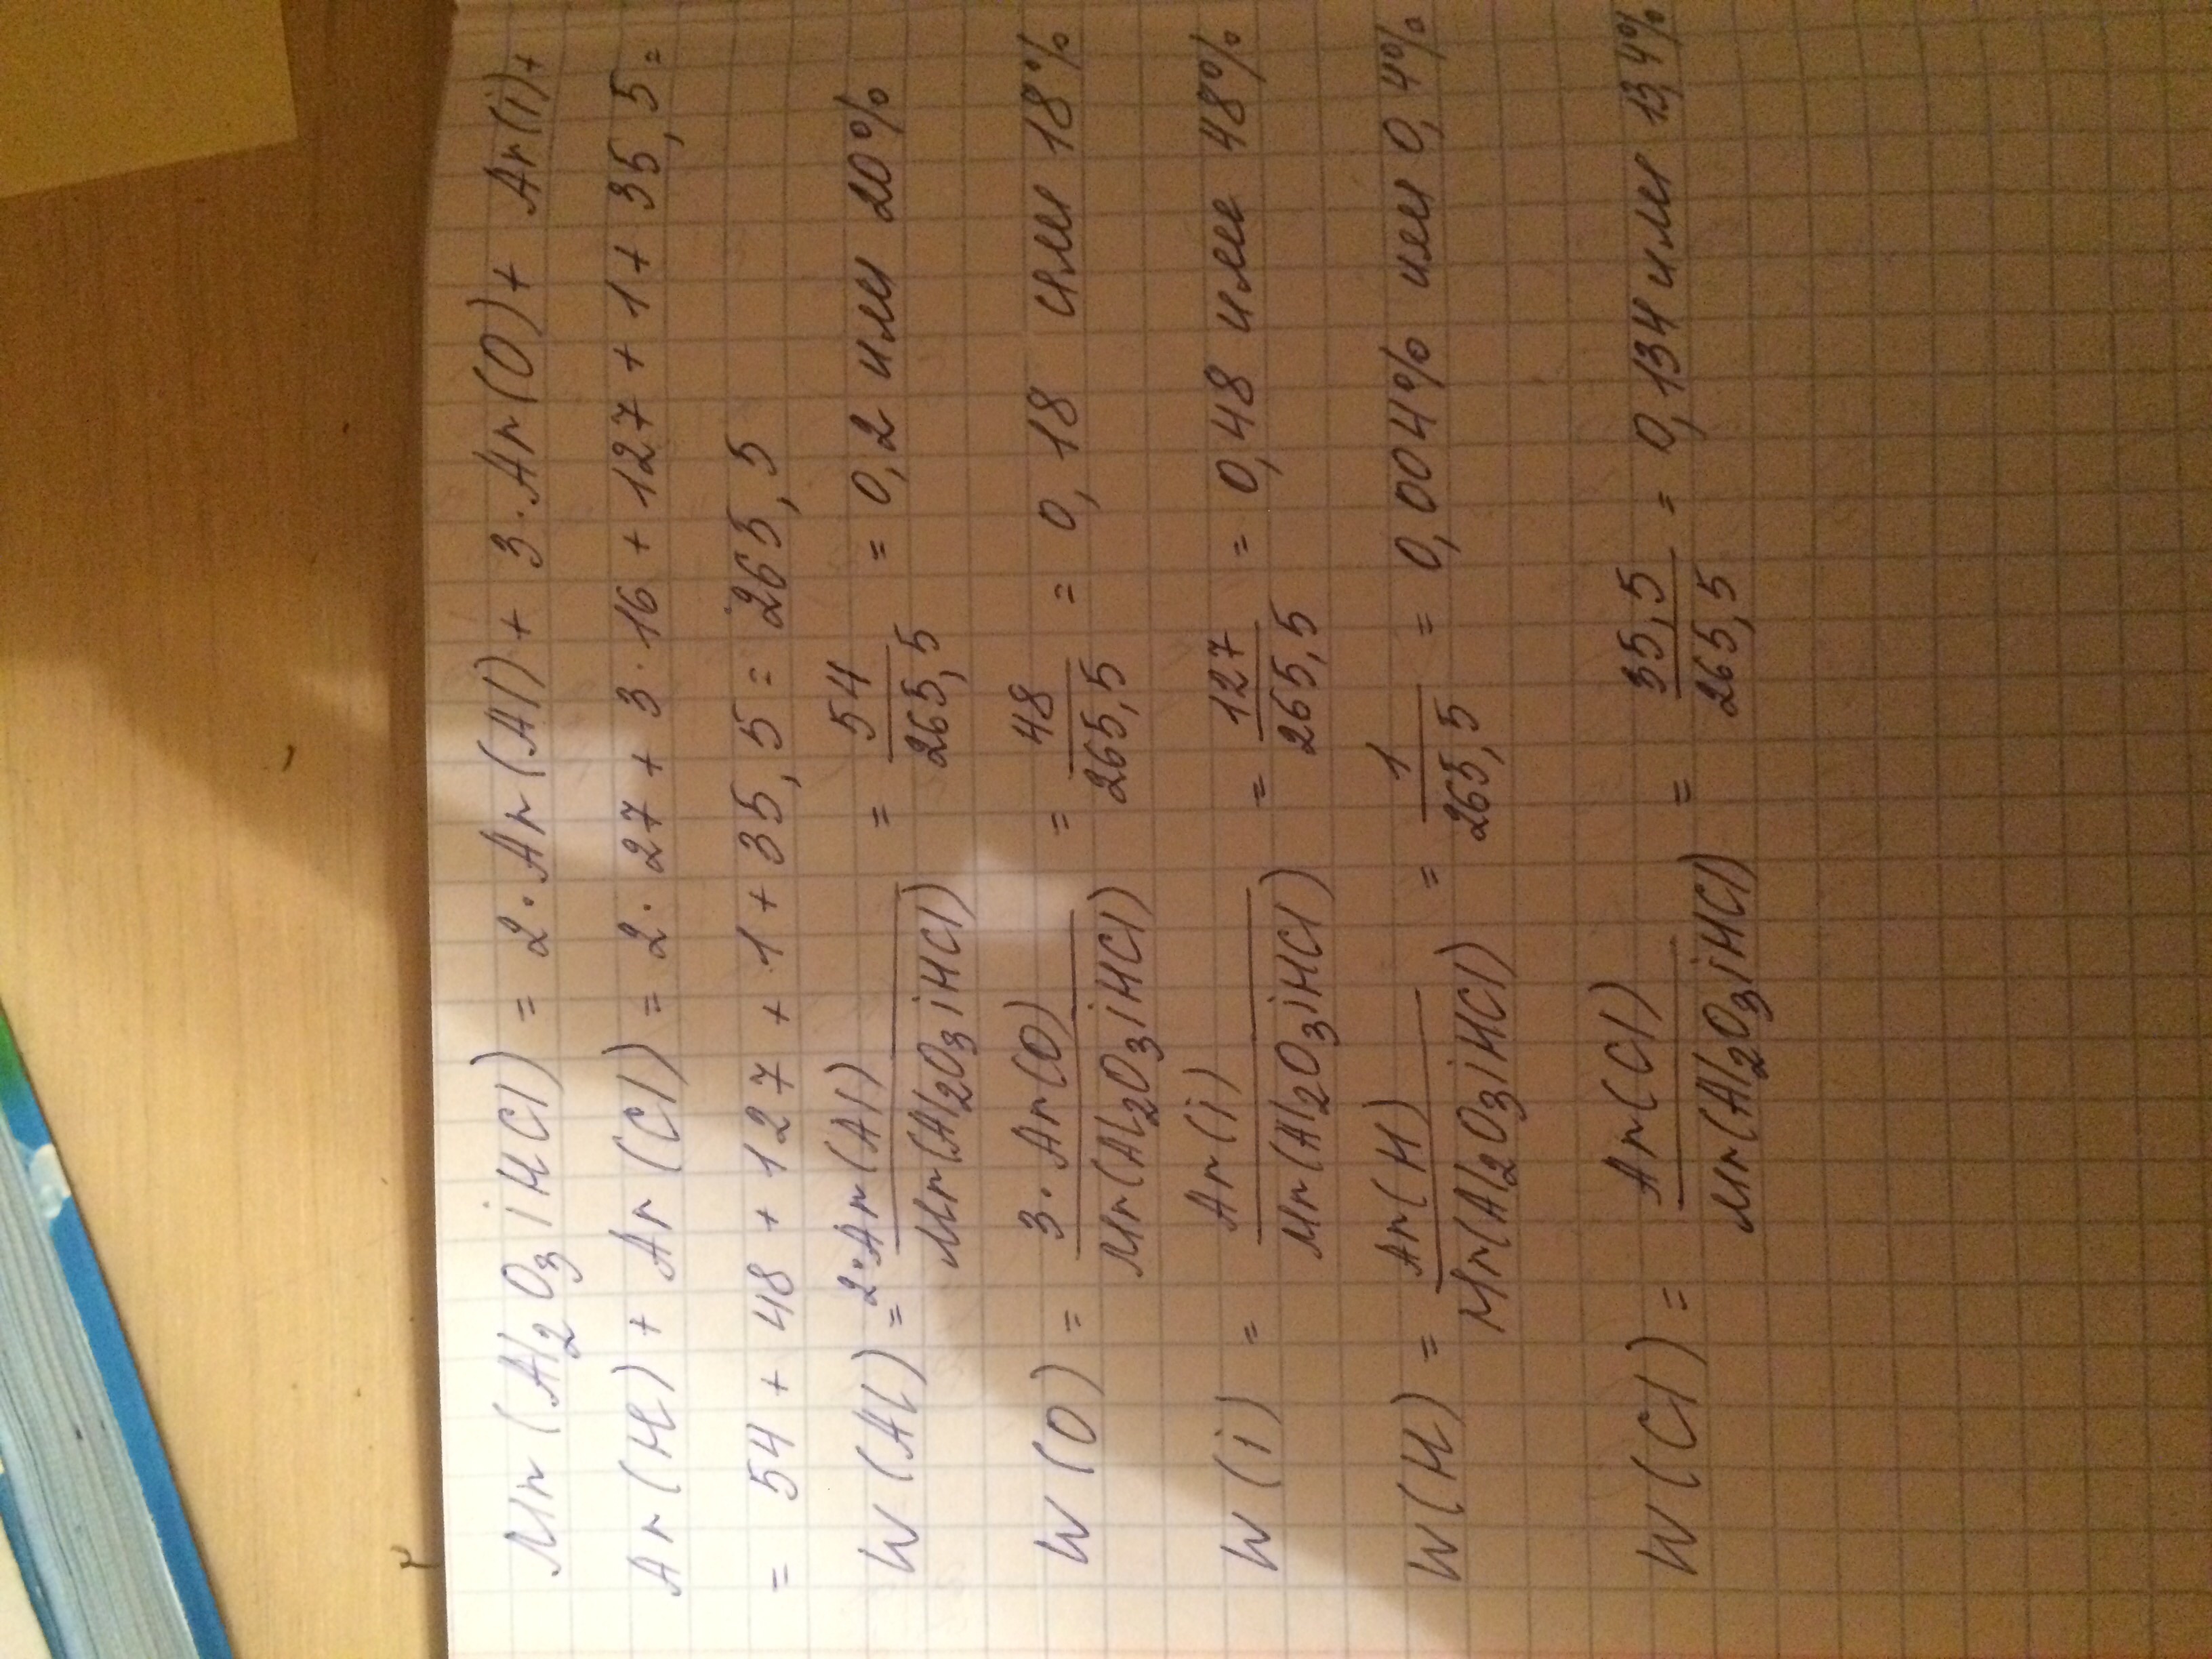 Mr(Al2O3iHCl) = 2·Ar(Al) + 3·Ar(O) + Ar(i) +
Ar(H) + Ar(Cl) = 2·27 + 3·16 + 127 + 1 + 35,5 =
= 54 + 48 + 127 + 1 + 35,5 = 265,5
W(Al) = 2·Ar(Al) / Mr(Al2O3iHCl) = 54 / 265,5 = 0,2 или 20%
W(O) = 3·Ar(O) / Mr(Al2O3iHCl) = 48 / 265,5 = 0,18 или 18%
W(i) = Ar(i) / Mr(Al2O3iHCl) = 127 / 265,5 = 0,48 или 48%
W(H) = Ar(H) / Mr(Al2O3iHCl) = 1 / 265,5 = 0,004% или 0,4%
W(Cl) = Ar(Cl) / Mr(Al2O3iHCl) = 35,5 / 265,5 = 0,134 или 13,4%